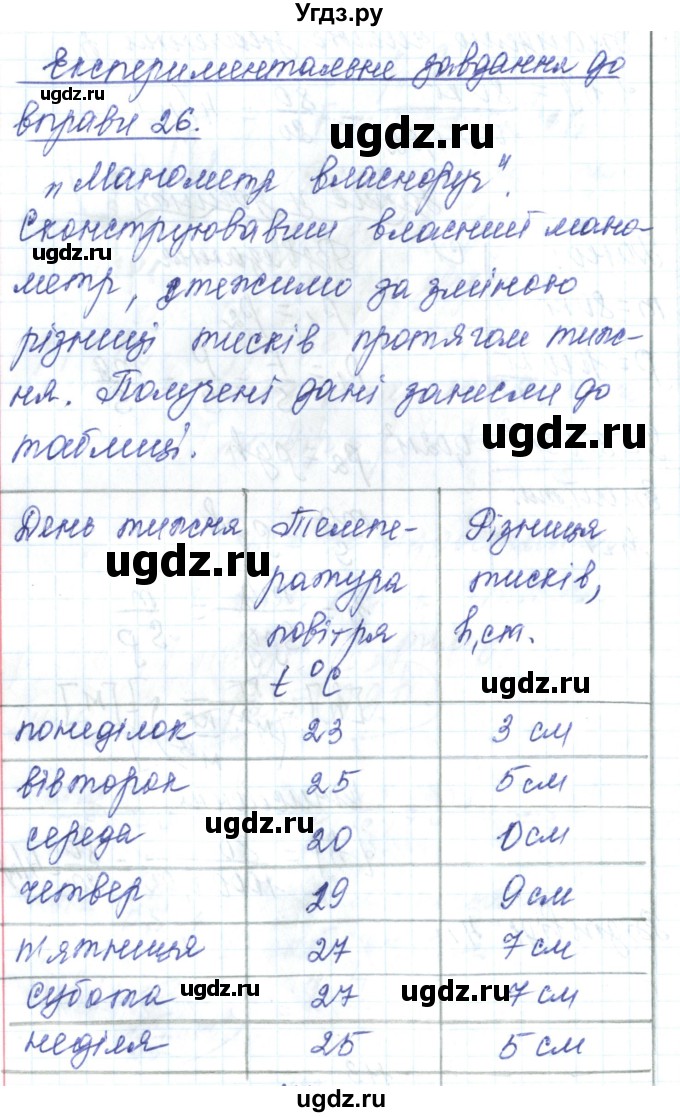 Угдз.ру
Експериментальне завдання до
вправи 26.
„Манометр власноруч".
Сконструювавши власний мано-
метр, стежимо за зміною
різниці тисків протягом тиж-
ня. Получені дані занесли до
таблиці.
День тижня Темпе- Різниця
ратура тисків,
повітря h, см.
t °C
понеділок 23 3 см
вівторок 25 5 см
середа 20 0 см
четвер 29 9 см
п'ятниця 27 7 см
субота 27 7 см
неділя 25 5 см
ugdz.ru
ugdz.ru
ugdz.ru
ugdz.ru
ugdz.ru
ugdz.ru
ugdz.ru
ugdz.ru
ugdz.ru
ugdz.ru
ugdz.ru
ugdz.ru